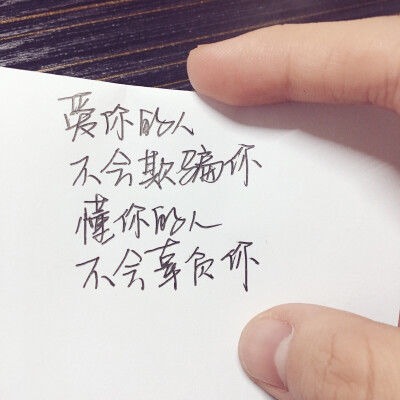 爱你的人
不会欺骗你
懂你的人
不会辜负你